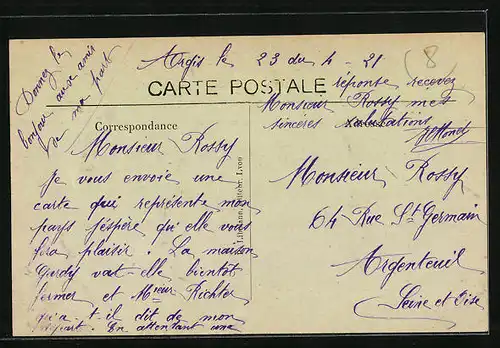 Donnez le
bonjour aux amis
de ma part
Argis le 23 du 4 - 21
8
CARTE POSTALE
réponse recevez
Monsieur Rossy mes
sincères salutations
Correspondance
Monsieur Rossy
Je vous envoie une
carte qui représente mon
pays j'éspère qu'elle vous
fera plaisir. La maison
Gurdy vat-elle bientôt
fermer et Mieur Richter
qu'a-t-il dit de mon
départ. En attentant une
Lyon
Monsieur Rossy
64 Rue St Germain
Argenteuil
Seine et Oise